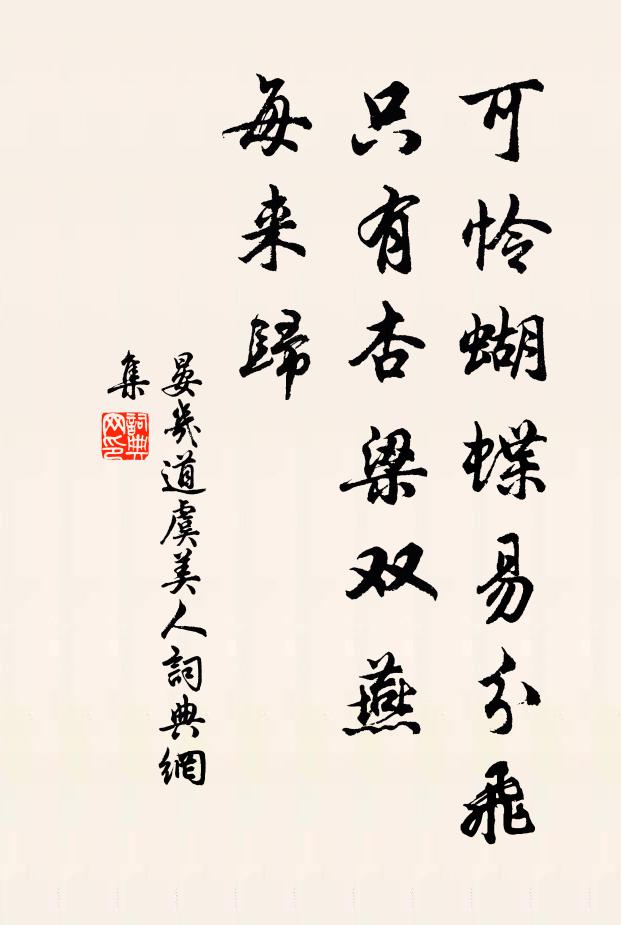 可怜蝴蝶易分飛
只有杏梁双燕
每来歸
晏幾道虞美人詞典網
集
詞典
网印